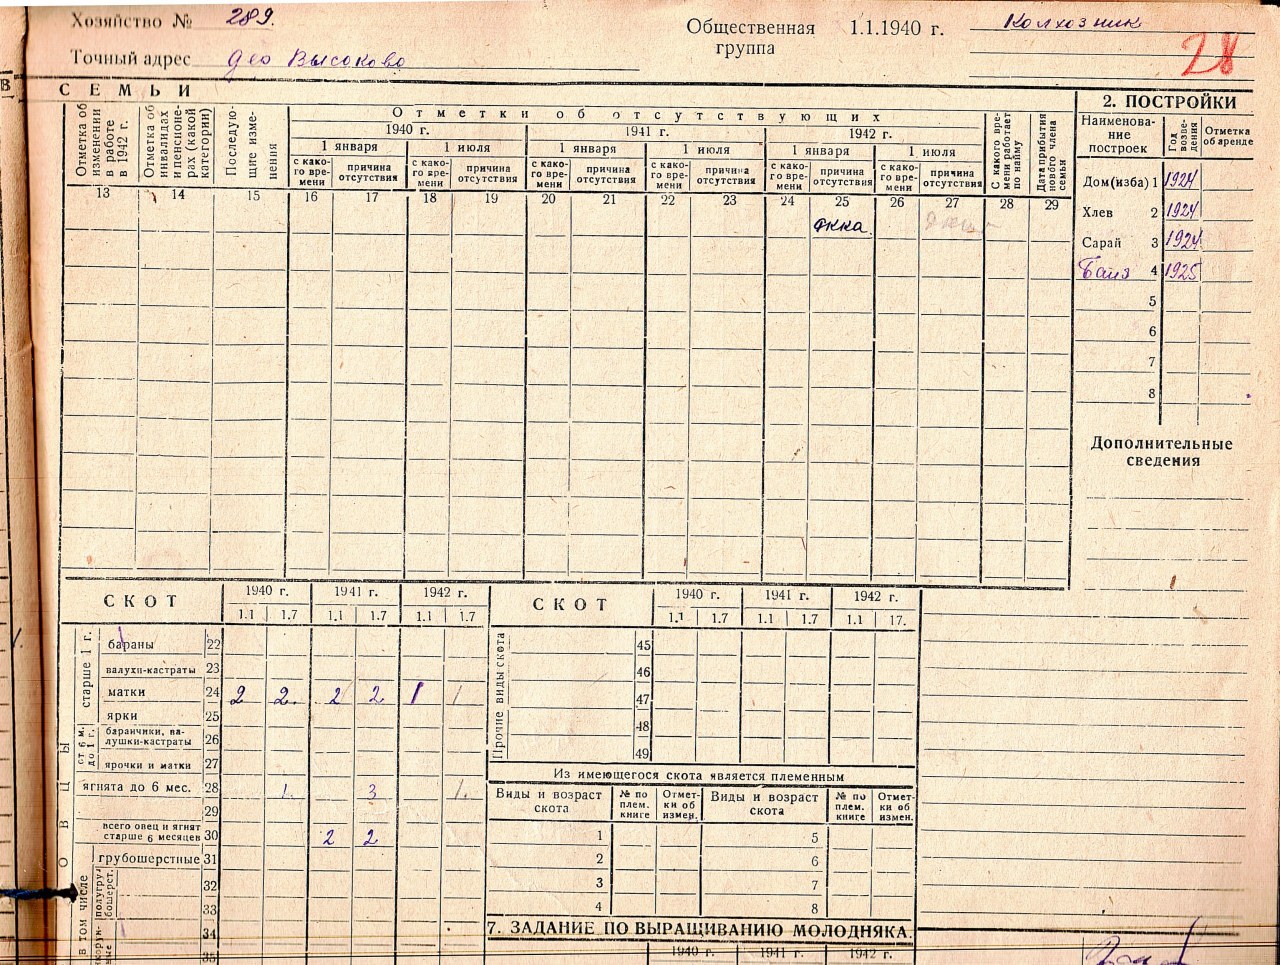 Хозяйство № 289.
Общественная группа 1.1.1940 г. Колхозник
28
Точный адрес дер Высоково
В
СЕМЬИ
Отметка об изменении в работе в 1942 г.
Отметка об инвалидах и пенсионерах (какой категории)
Последующие изменения
Отметки об отсутствующих
1940 г. 1941 г. 1942 г.
1 января 1 июля 1 января 1 июля 1 января 1 июля
с какого времени причина отсутствия с какого времени причина отсутствия с какого времени причина отсутствия с какого времени причина отсутствия с какого времени причина отсутствия с какого времени причина отсутствия
С какого времени работает по найму
Дата прибытия нового члена семьи
13 14 15 16 17 18 19 20 21 22 23 24 25 26 27 28 29
ркка.
2. ПОСТРОЙКИ
Наименование построек
Год возведения
Отметка об аренде
Дом(изба) 1 1924
Хлев 2 1924
Сарай 3 1924
Баня 4 1925
5
6
7
8
Дополнительные
сведения
СКОТ
1940 г. 1941 г. 1942 г.
1.1 1.7 1.1 1.7 1.1 1.7
ОВЦЫ
старше 1 г.
бараны 22
валухи-кастраты 23
матки 24 2 2. 2 2 1 1
ярки 25
от 6 м. до 1 г.
баранчики, ва-
лушки-кастраты 26
ярочки и матки 27
ягнята до 6 мес. 28 1. 3 1.
29
всего овец и ягнят
старше 6 месяцев 30 2 2
в том числе
грубошерстные 31
полугрубошерст.
32
33
34
35
СКОТ
1940 г. 1941 г. 1942 г.
1.1 1.7 1.1 1.7 1.1 17.
Прочие виды скота
45
46
47
48
49
Из имеющегося скота является племенным
Виды и возраст скота № по плем. книге Отметки об измен. Виды и возраст скота № по плем. книге Отметки об измен.
1 5
2 6
3 7
4 8
7. ЗАДАНИЕ ПО ВЫРАЩИВАНИЮ МОЛОДНЯКА.
1940 г. 1941 г. 1942 г.